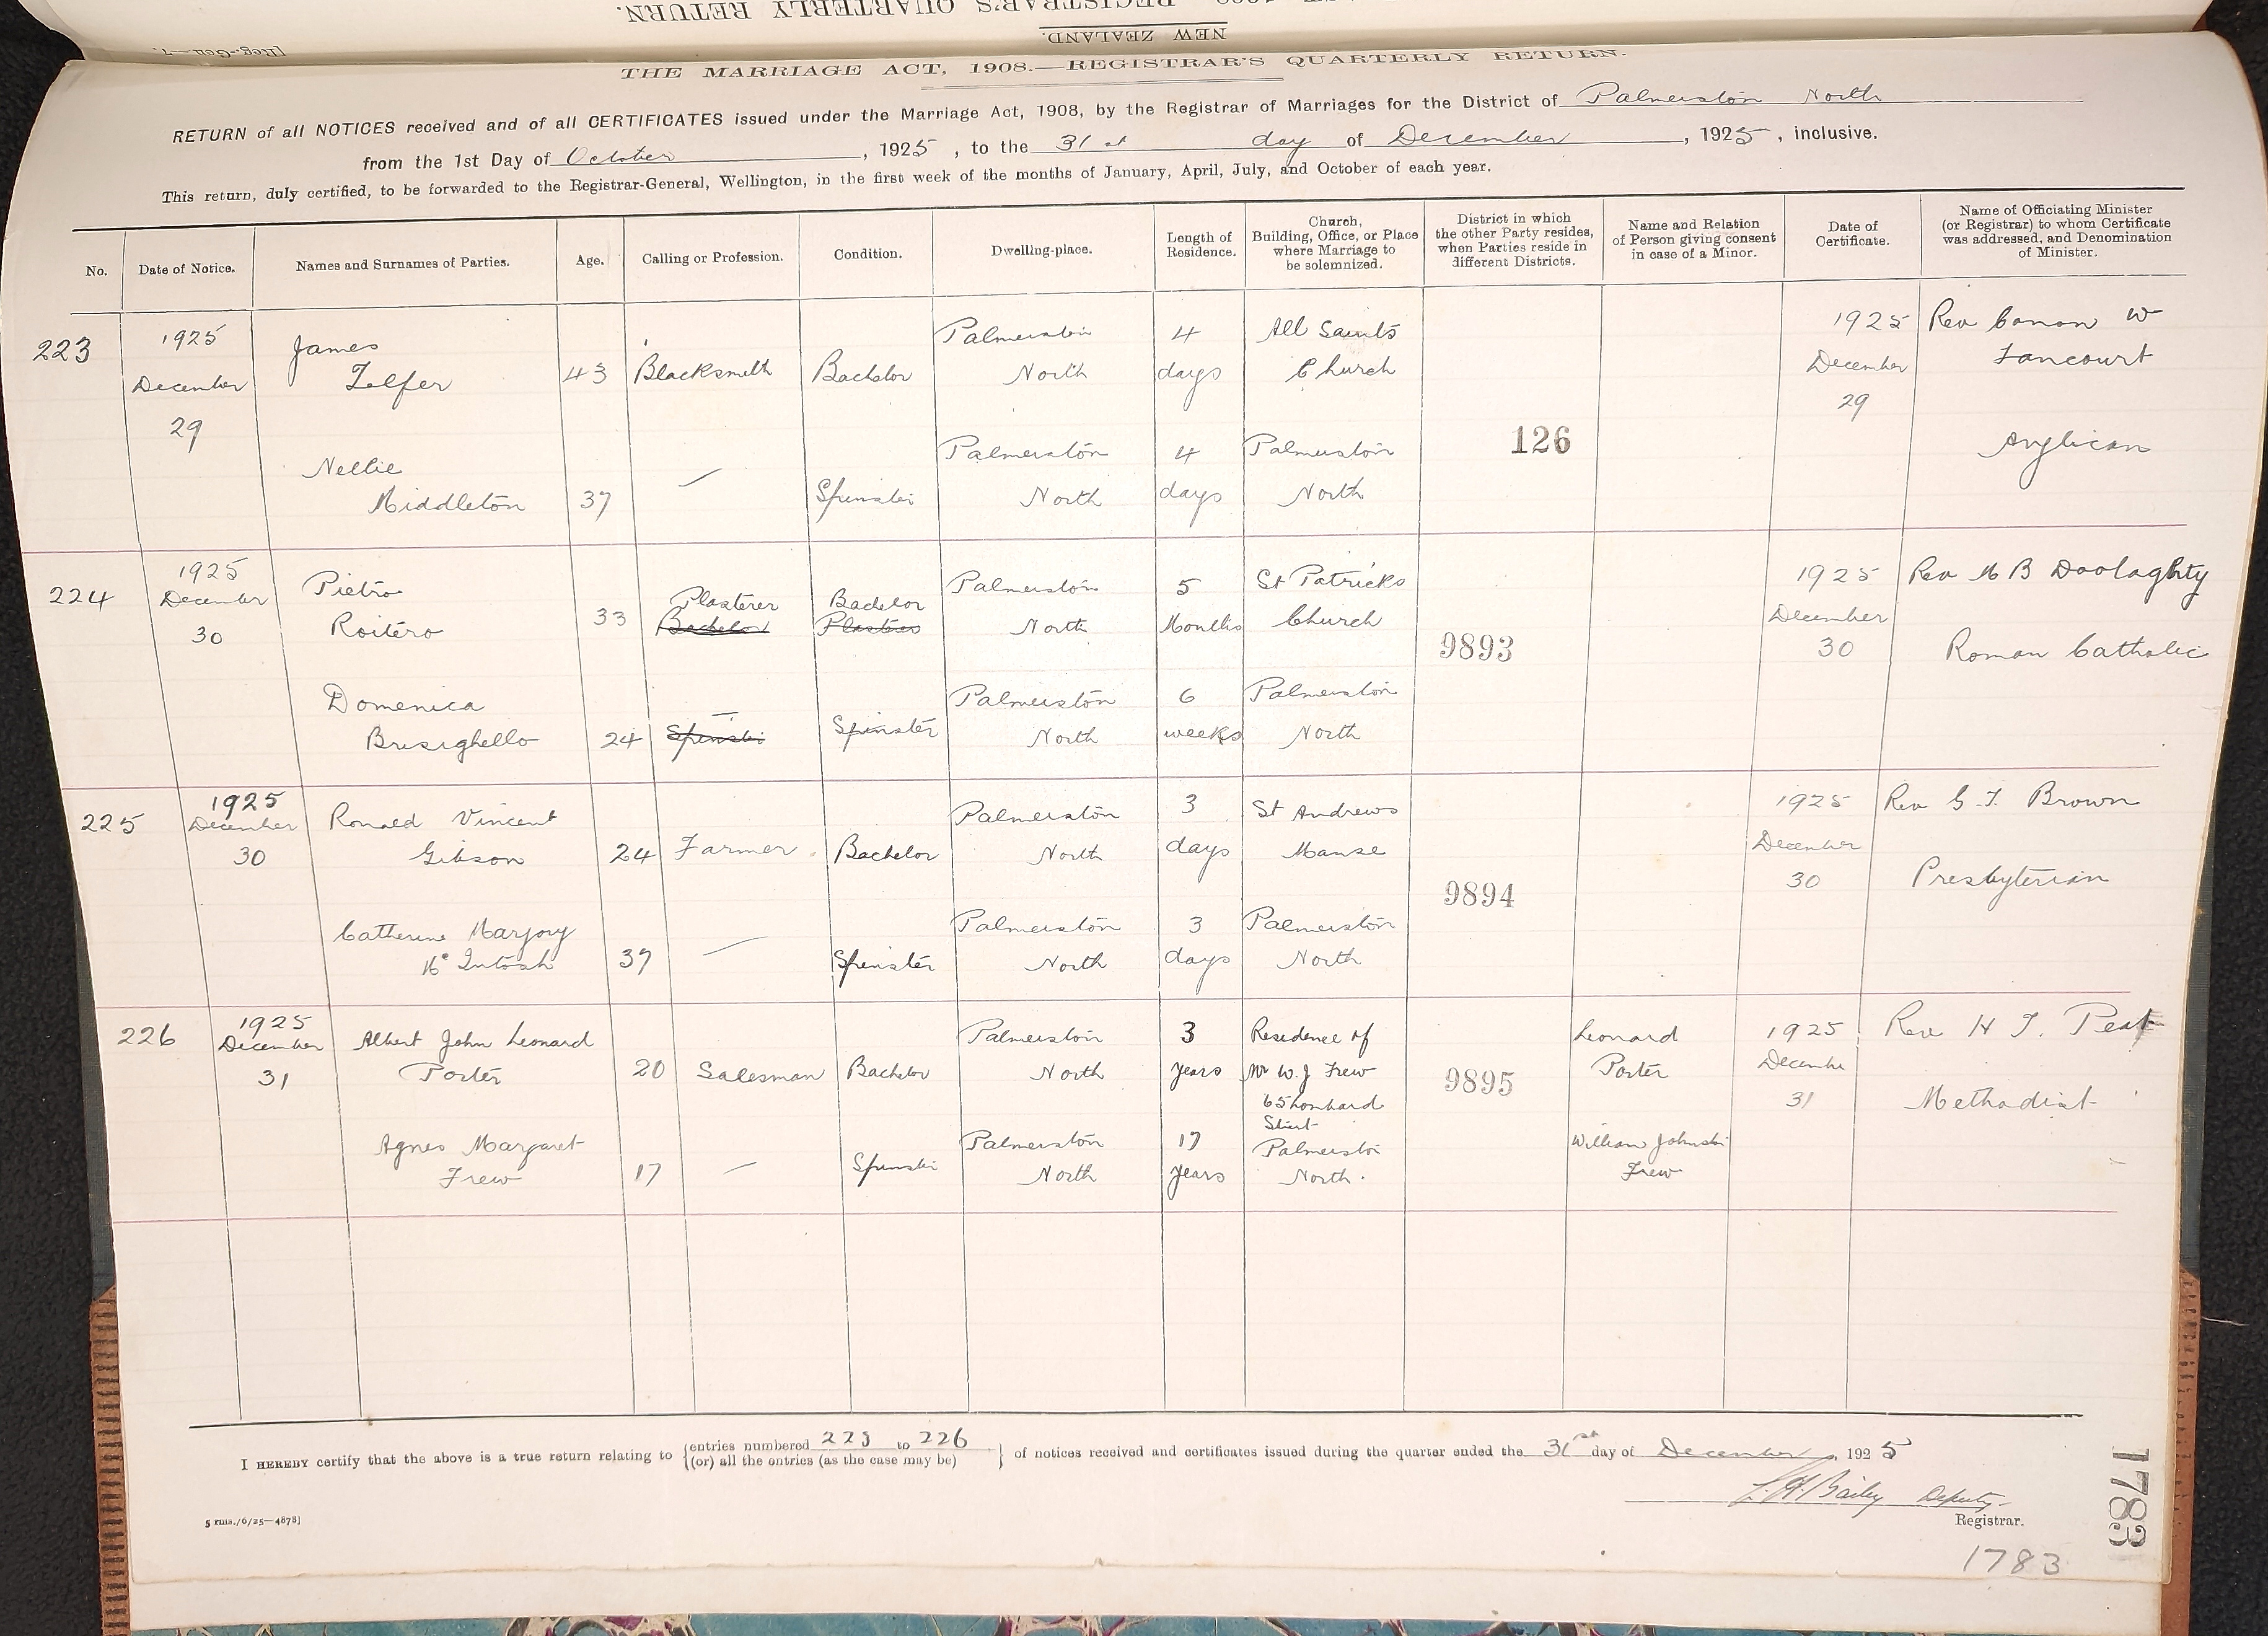 THE MARRIAGE ACT, 1908.—REGISTRAR'S QUARTERLY RETURN.
NEW ZEALAND.
[Reg.-Gen.—7.
THE MARRIAGE ACT, 1908.—REGISTRAR'S QUARTERLY RETURN.
RETURN of all NOTICES received and of all CERTIFICATES issued under the Marriage Act, 1908, by the Registrar of Marriages for the District of Palmerston North
from the 1st Day of October, 1925, to the 31st day of December, 1925, inclusive.
This return, duly certified, to be forwarded to the Registrar-General, Wellington, in the first week of the months of January, April, July, and October of each year.
No.
Date of Notice.
Names and Surnames of Parties.
Age.
Calling or Profession.
Condition.
Dwelling-place.
Length of
Residence.
Church,
Building, Office, or Place
where Marriage to
be solemnized.
District in which
the other Party resides,
when Parties reside in
different Districts.
Name and Relation
of Person giving consent
in case of a Minor.
Date of
Certificate.
Name of Officiating Minister
(or Registrar) to whom Certificate
was addressed, and Denomination
of Minister.
223
1925
December
29
James
Telfer
43
Blacksmith
Bachelor
Palmerston
North
4
days
All Saints
Church
Nellie
Middleton
37
—
Spinster
Palmerston
North
4
days
Palmerston
North
126
1925
December
29
Rev Canon W
Fancourt
Anglican
224
1925
December
30
Pietro
Roitero
33
Plasterer
Bachelor
Bachelor
Plasterer
Palmerston
North
5
Months
St Patricks
Church
Domenica
Brisighello
24
—
Spinster
Spinster
Palmerston
North
6
weeks
Palmerston
North
9893
1925
December
30
Rev M B Doolaghty
Roman Catholic
225
1925
December
30
Ronald Vincent
Gibson
24
Farmer
Bachelor
Palmerston
North
3
days
St Andrews
Manse
Catherine Marjory
McIntosh
37
—
Spinster
Palmerston
North
3
days
Palmerston
North
9894
1925
December
30
Rev G. T. Brown
Presbyterian
226
1925
December
31
Albert John Leonard
Porter
20
Salesman
Bachelor
Palmerston
North
3
years
Residence of
Mr W. J Frew
65 Lombard
Street
Agnes Margaret
Frew
17
—
Spinster
Palmerston
North
17
years
Palmerston
North.
9895
Leonard
Porter
William Johnston
Frew
1925
December
31
Rev H T. Peat
Methodist
I HEREBY certify that the above is a true return relating to {entries numbered 223 to 226
{(or) all the entries (as the case may be)
} of notices received and certificates issued during the quarter ended the 31st day of December, 1925
Bailey Deputy
Registrar.
5 rms./6/25—4878]
1783
1783